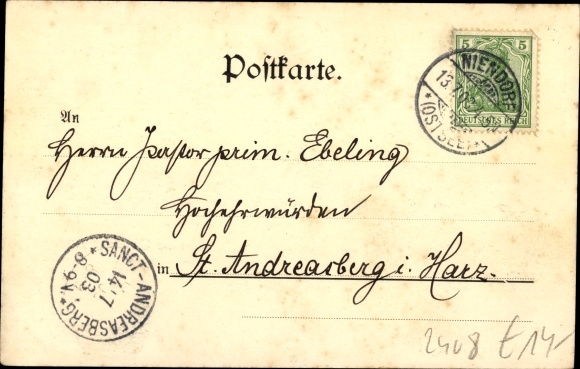 Postkarte.
5 5
NIENDORF
13.7.03
*(OSTSEE)*
DEUTSCHES REICH
An
Herrn Pastor prim. Ebeling
Hochehrwürden
in St. Andreasberg i. Harz.
*SANCT-ANDREASBERG*
14 7
03
8-9V.
2408 £ 14-